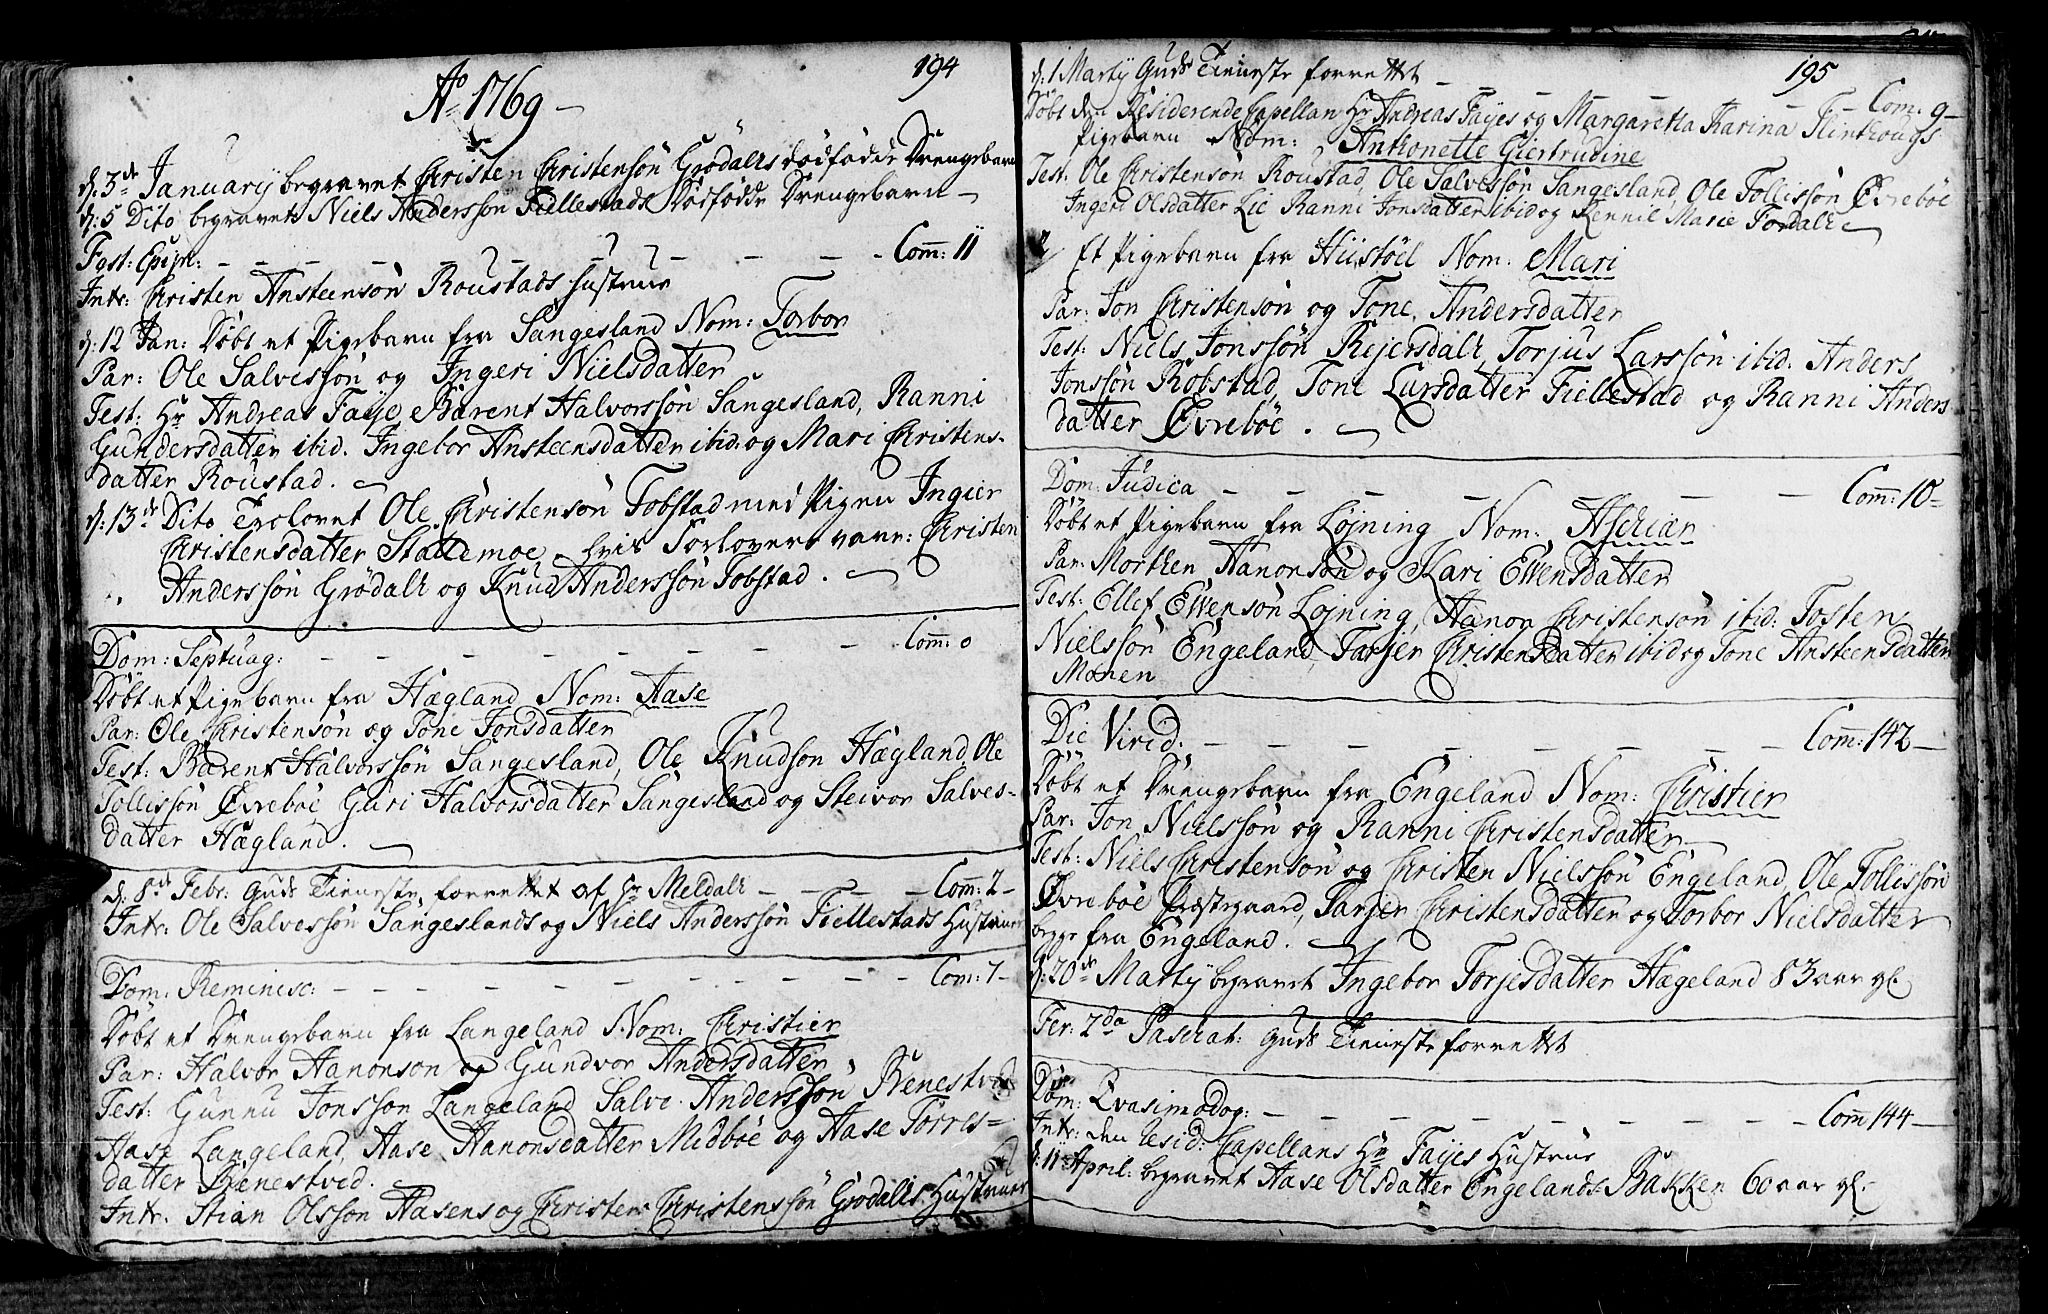 194
Ao 1769 –
d: 3de Januarij begravet Christen Christensön Grödals dödfödde Drengebarn
d: 5 Dito begravet Niels Anderssön Fiellestads Dödfödde Drengebarn –
Fest: Epiph: – – – – – – – – – Com̄: 11
Intr: Christen Ansteensön Roustads hustrue
d: 12 Jan: Döbt et Pigebarn fra Sangesland Nom: Torbor
Par: Ole Salvessön og Ingeri Nielsdatter
Test: Hr Andreas Faÿe, Barent Halvorssön Sangesland, Ranni
Gundersdatter ibid. Ingebor Ansteensdatter ibid. og Mari Christens-
datter Roustad.
d: 13de Dito Trolovet Ole Christensön Tobstad med Pigen Ingier
Christensdatter Stallemoe, hvis Forlovere vare: Christen
Anderssön Grödals og Knud Anderssön Tobstad.
Dom: Septuag: – – – – – – – – – Com̄: 0
Döbt et Pigebarn fra Hægland Nom: Aase
Par: Ole Christensön og Tone Jonsdatter
Test: Barent Halvorssön Sangesland, Ole Knudson Hægland, Ole
Tollissön Øvreböe Guri Halvorsdatter Sangesland og Steivor Salves-
datter Hægland.
d: 8de Febr: Guds Tieneste forrettet af Hr Meldals – – – – Com̄: 2 –
Intr: Ole Salvessön Sangeslands og Niels Anderssön Fiellestads Hustruer
Dom: Reminisc: – – – – – – – – – Com: 7 –
Döbt et Drengebarn fra Langeland Nom: Christier
Par: Halvor Aanonson og Gundvor Andersdatter
Test: Gunnu Jonsson Langeland Salve Anderssön Benestvid
Aase Langeland, Aase Aanonsdatter Midböe og Aase Torres-
datter Benestvid.
Intr. Stian Olsson Aasens og Christen Christenssön Grödals Hustruer
195
d: 1 Martij Guds Tieneste forrettet – – – – – – – Com: 9 –
Döbt den Residerende Capellan Hr Andreas Fayes og Margaretta Karina Flinthougs
Pigebarn Nom: Anthonette Giertrudine
Test: Ole Christensön Roustad, Ole Salvessön Sangesland, Ole Tollissön Øvreböe
Ingeri Olsdatter Lie Ranni Jonsdatter ibid og Marie
Et Pigebarn fra Hiistöel Nom. Mari
Par: Jon Christensön og Tone Andersdatter
Test: Niels Jonssön Rejersdals, Torjus Larssön ibid. Anders
Jonssön Robstad, Tone Larsdatter Fiellestad og Ranni Anders
datter Øvreböe.
Dom: Judica – – – – – – – – Com̄: 10 –
Döbt et Pigebarn fra Løjning Nom: Aschiær
Par: Morthen Aanonsön og Kari Evensdatter
Test: Ellef Evensön Løjning, Aanon Christensön ibid: Tosten
Nielssön Engeland, Tarjer Christensdatter ibid og Tone Ansteensdatter
Moren
Die Virid. – – – – – – – – Com: 142 –
Döbt et Drengebarn fra Engeland Nom: Christier
Par: Jon Nielssön og Ranni Christensdatter
Test: Niels Christensön og Christen Nielssön Engeland, Ole Tollissön
Øvreböe Præstegaard, Tarjer Christensdatter og Torbor Nielsdatter
begge fra Engeland.
d: 20de Martij begravet Ingebor Torjesdatter Hægeland 83 aar gl.
Fer: 2da Paschat: Guds Tieneste forrettet
Dom: Qvasimodog: – – – – – – – – Com̄ 144 –
Intr: den Resid: Capellans Hr Fayes Hustrue
d: 11te April: begravet Aase Olsdatter Engelands-Bakken 60 aar gl.